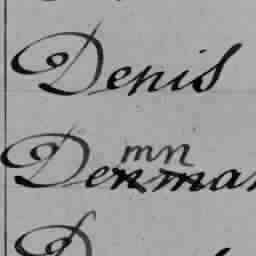 Denis
mn
Denmar